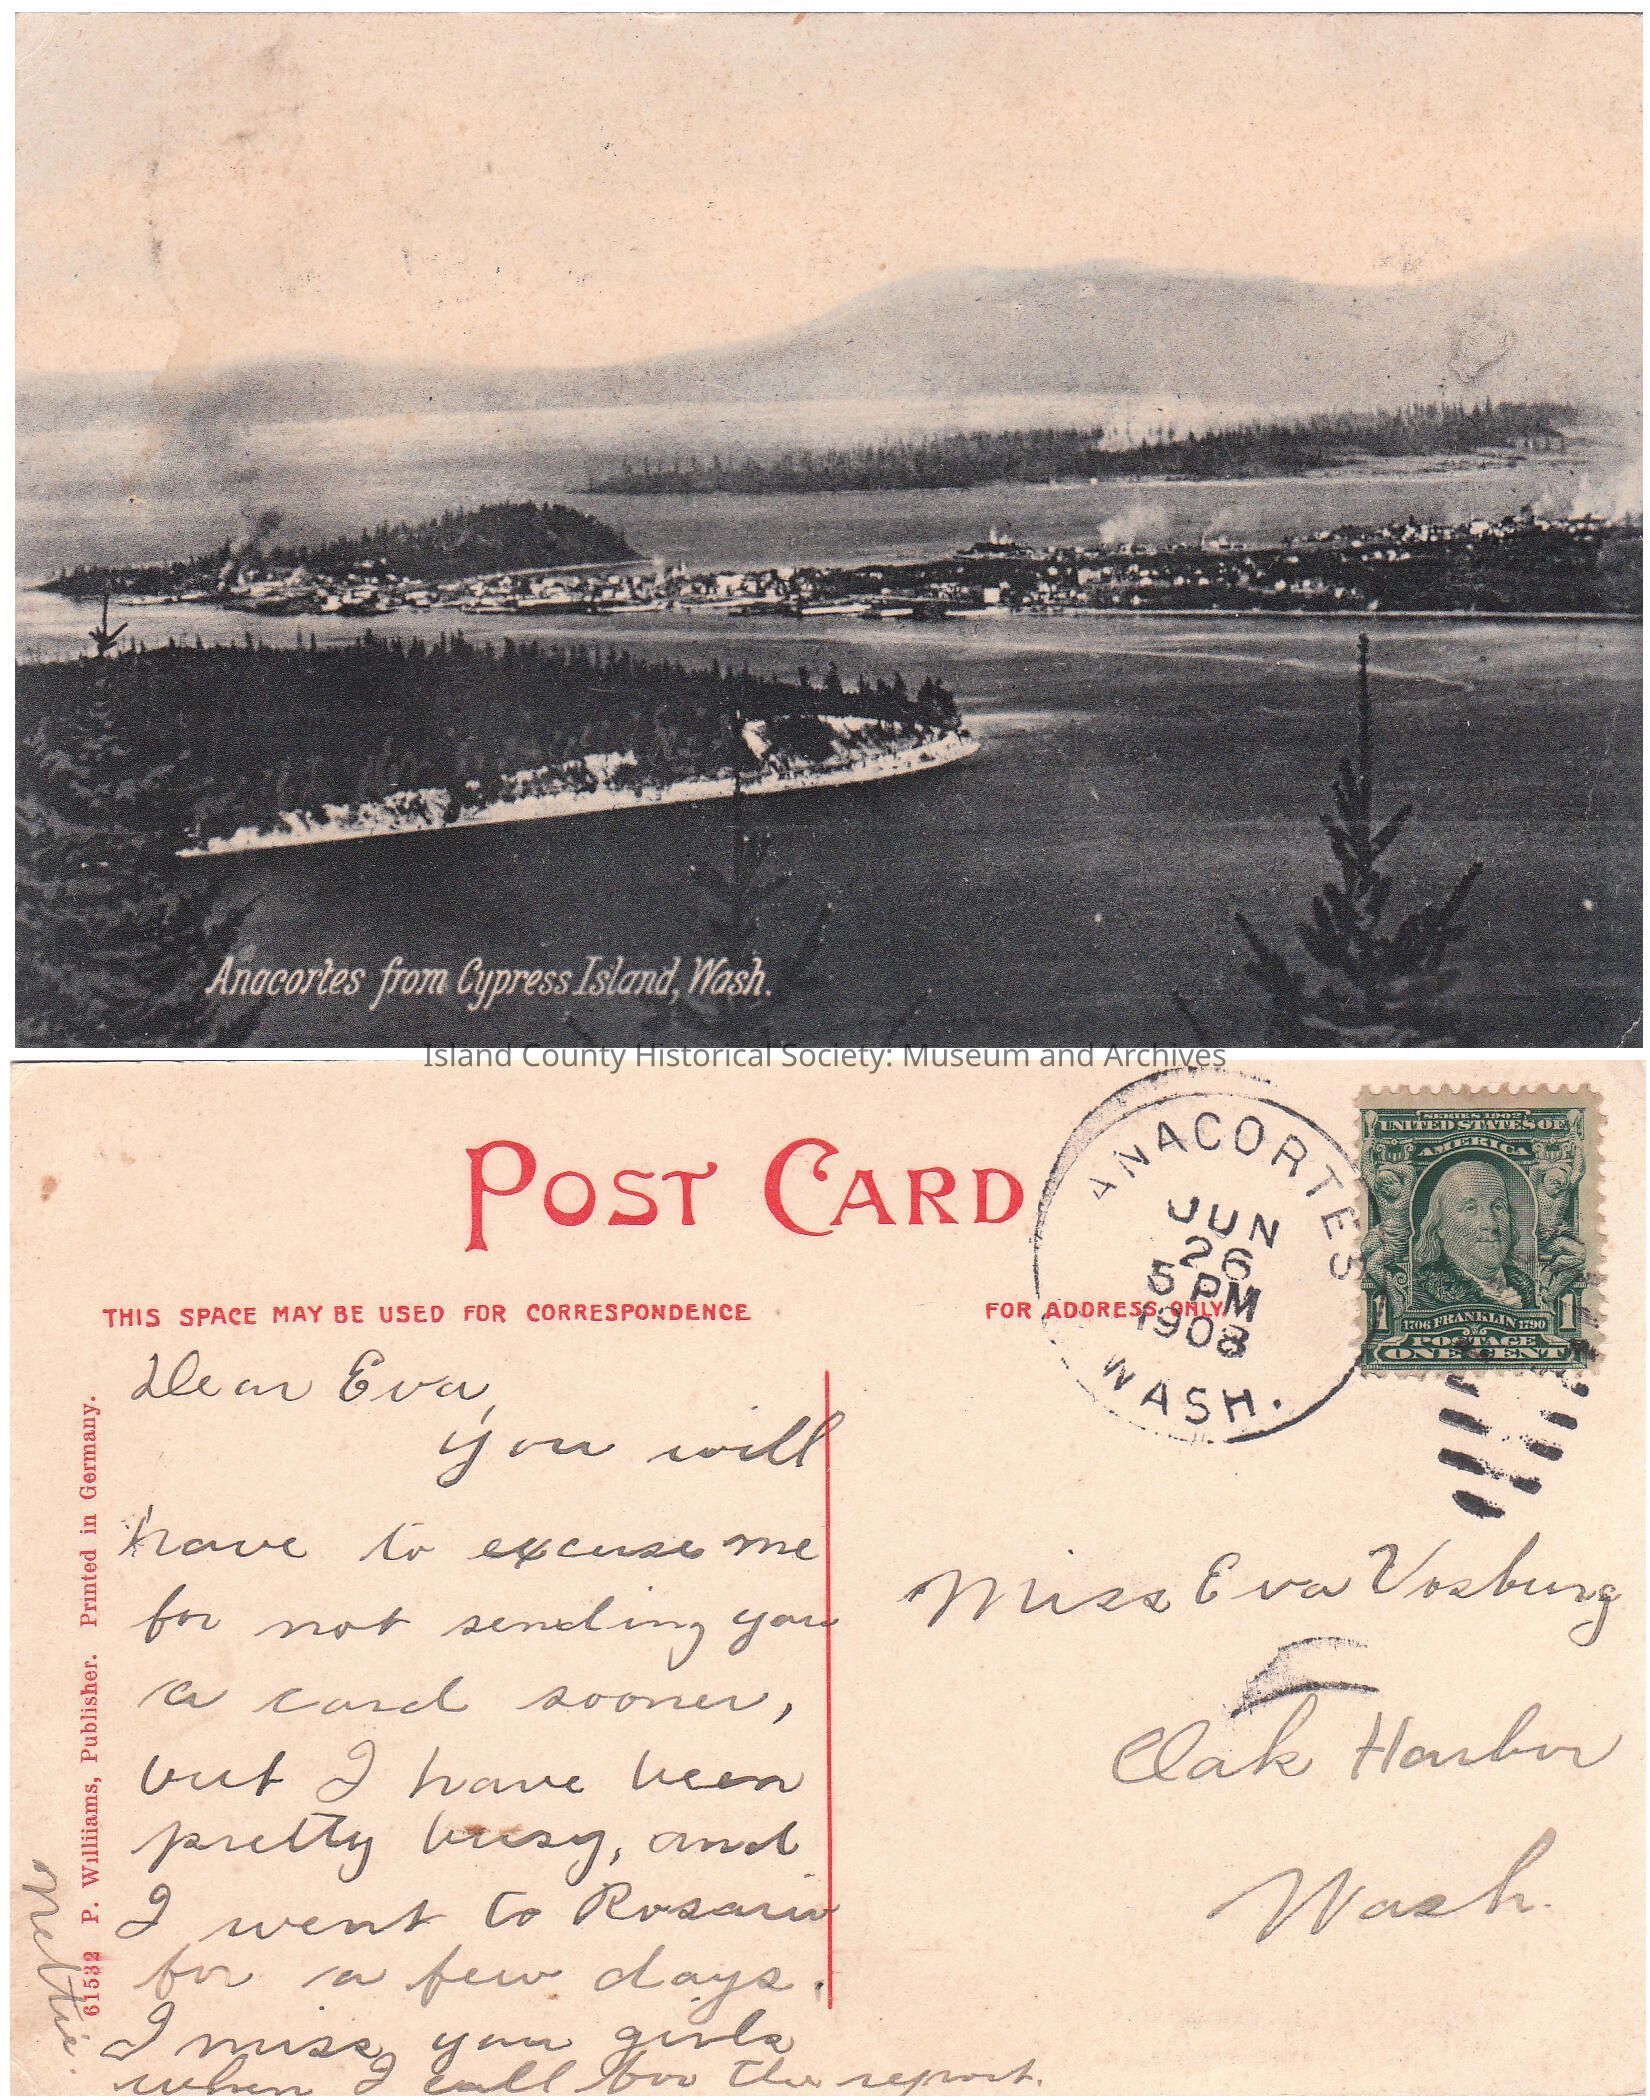 Anacortes from Cypress Island, Wash.
Island County Historical Society: Museum and Archives
POST CARD
THIS SPACE MAY BE USED FOR CORRESPONDENCE
FOR ADDRESS ONLY
ANACORTES
JUN
26
5 PM
1908
WASH.
SERIES 1902
UNITED STATES OF
AMERICA
1 1706 FRANKLIN 1790 1
POSTAGE
ONE CENT
Dear Eva,
You will
have to excuse me
for not sending you
a card sooner,
but I have been
pretty busy, and
I went to Rosario
for a few days.
I miss you girls
when I call for the report.
Nettie.
61532 P. Williams, Publisher. Printed in Germany.
Miss Eva Vosburg
Oak Harbor
Wash.